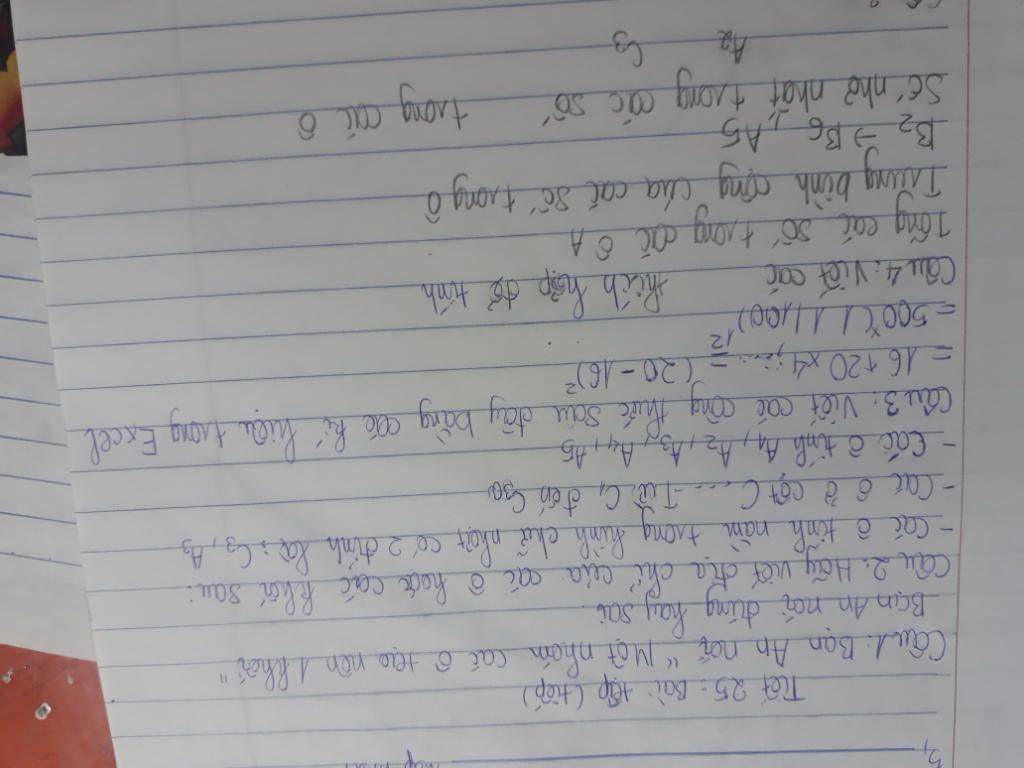 Tiết 25: Bài tập (tiếp)
Câu 1: Bạn An nói "Một nhóm các ô tạo nên 1 khối"
Bạn An nói đúng hay sai.
Câu 2: Hãy viết địa chỉ của các ô hoặc các khối sau:
- Các ô tính nằm trong hình chữ nhật có 2 đỉnh là: C3, A3
- Các ô ở cột C ... Từ C1 đến C30
- Các ô tính A1, A2, A3, A4, A5
Câu 3: Viết các công thức sau đây bằng các kí hiệu trong Excel
= 16 + 20 x 4 ;... = (20 - 16)²
12
= 500 (1 1,100)
Câu 4: Viết các thích hợp để tính
Tổng các số trong các ô A
Trung bình cộng của các số trong ô
B2 → B6, A5
Số nhỏ nhất trong các số trong các ô
A2 C3